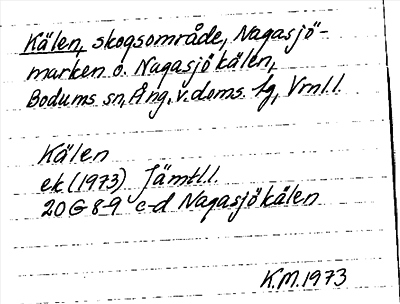 Kälen, skogsområde, Nagasjö-
marken o. Nagasjökälen,
Bodums sn, Ång. v. doms. fg, Vrnl. l.
Kälen
ek (1973) Jämtl. l.
20G 8-9 c-d Nagasjökälen
K.M. 1973